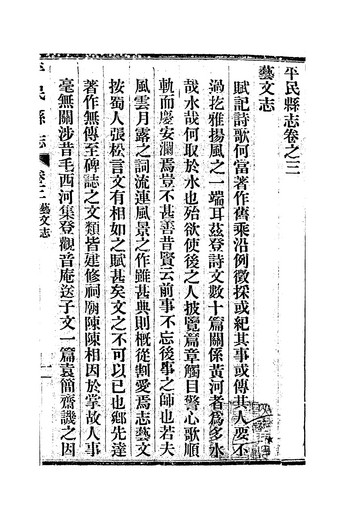 平民縣志卷之三
藝文志
賦記詩歌何富著作舊乘沿例徵採或紀其事或傳其人要不
過扢雅揚風之一端耳茲登詩文數十篇關係黃河者爲多水
哉水哉何取於水也殆欲使後之人披覽篇章觸目警心歌順
軌而慶安瀾焉豈不甚善昔賢云前事不忘後事之師也若夫
風雲月露之詞流連風景之作雖甚典則槪從割愛焉志藝文
按蜀人張松言文有相如之賦甚矣文之不可以已也鄉先達
著作無傳至碑誌之文類皆建修祠廟陳陳相因於掌故人事
毫無關涉昔毛西河集登觀音庵送子文一篇袁簡齋譏之因
平民縣志
卷三藝文志
一